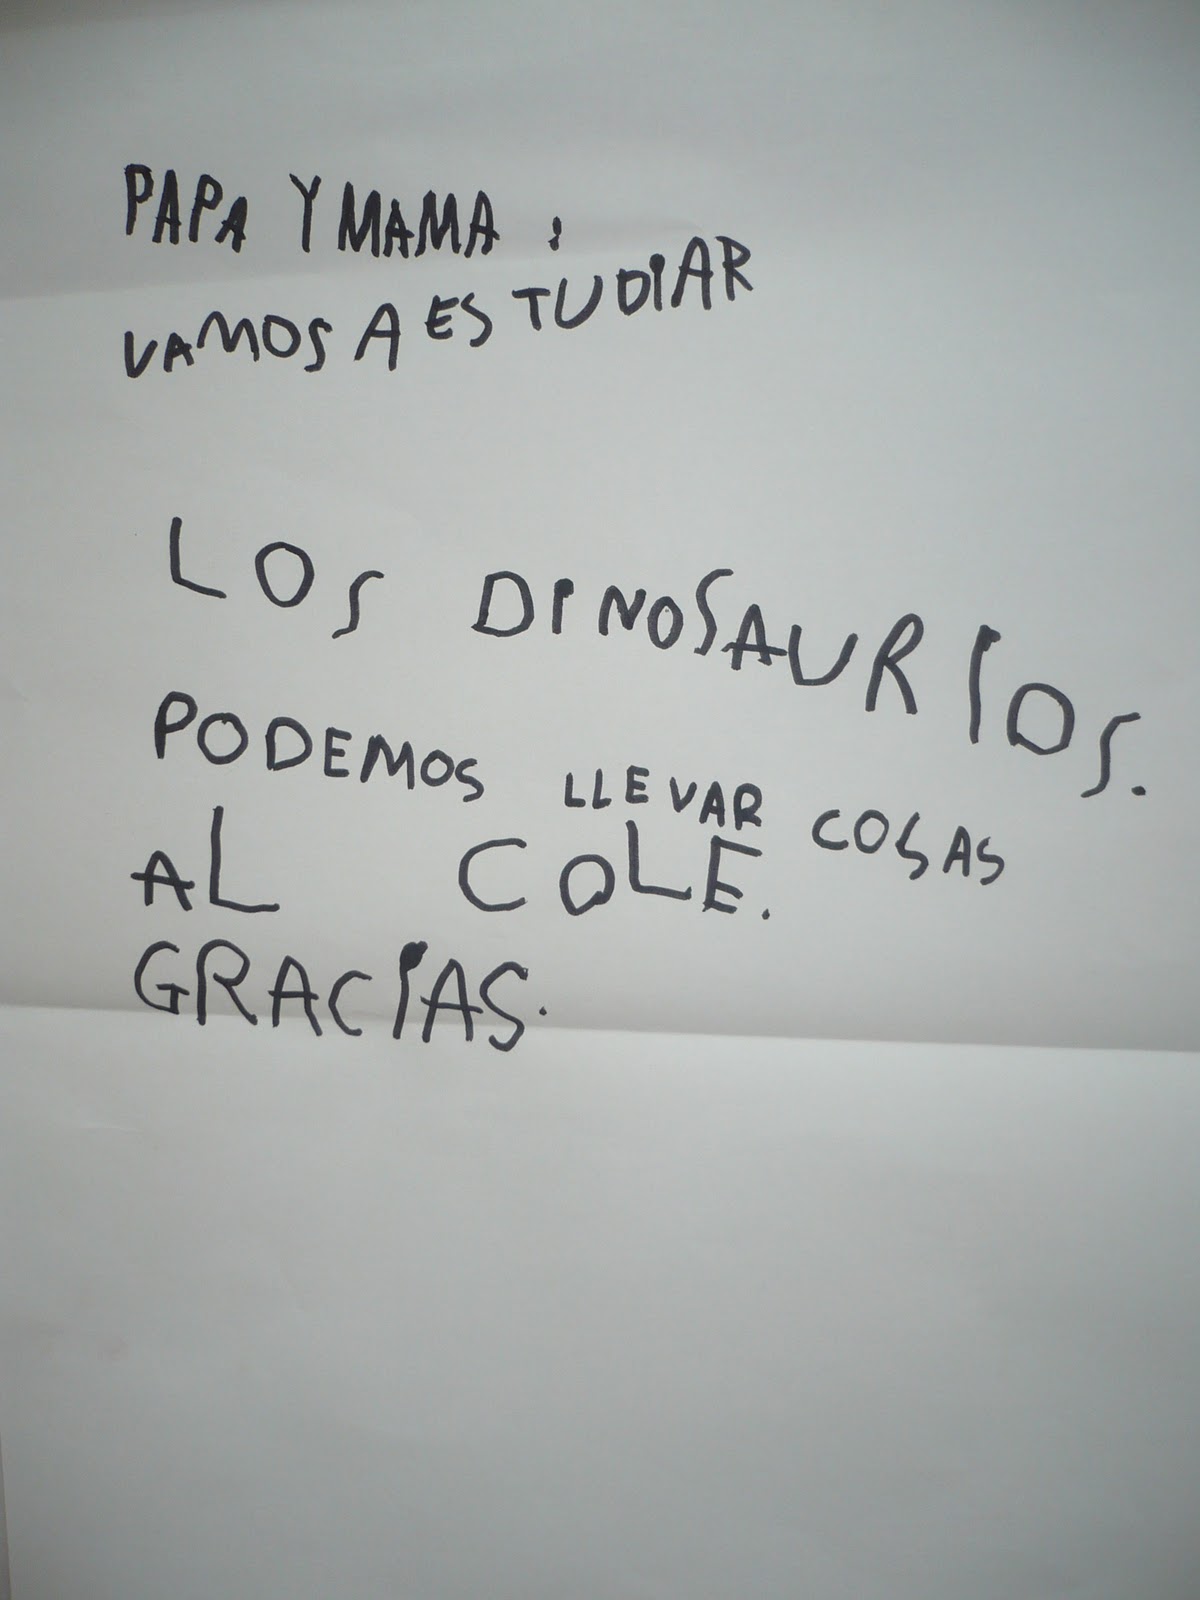 PAPA Y MAMA :
VAMOS A ESTUDIAR
LOS DINOSAURIOS.
PODEMOS LLEVAR COSAS
AL COLE.
GRACIAS.